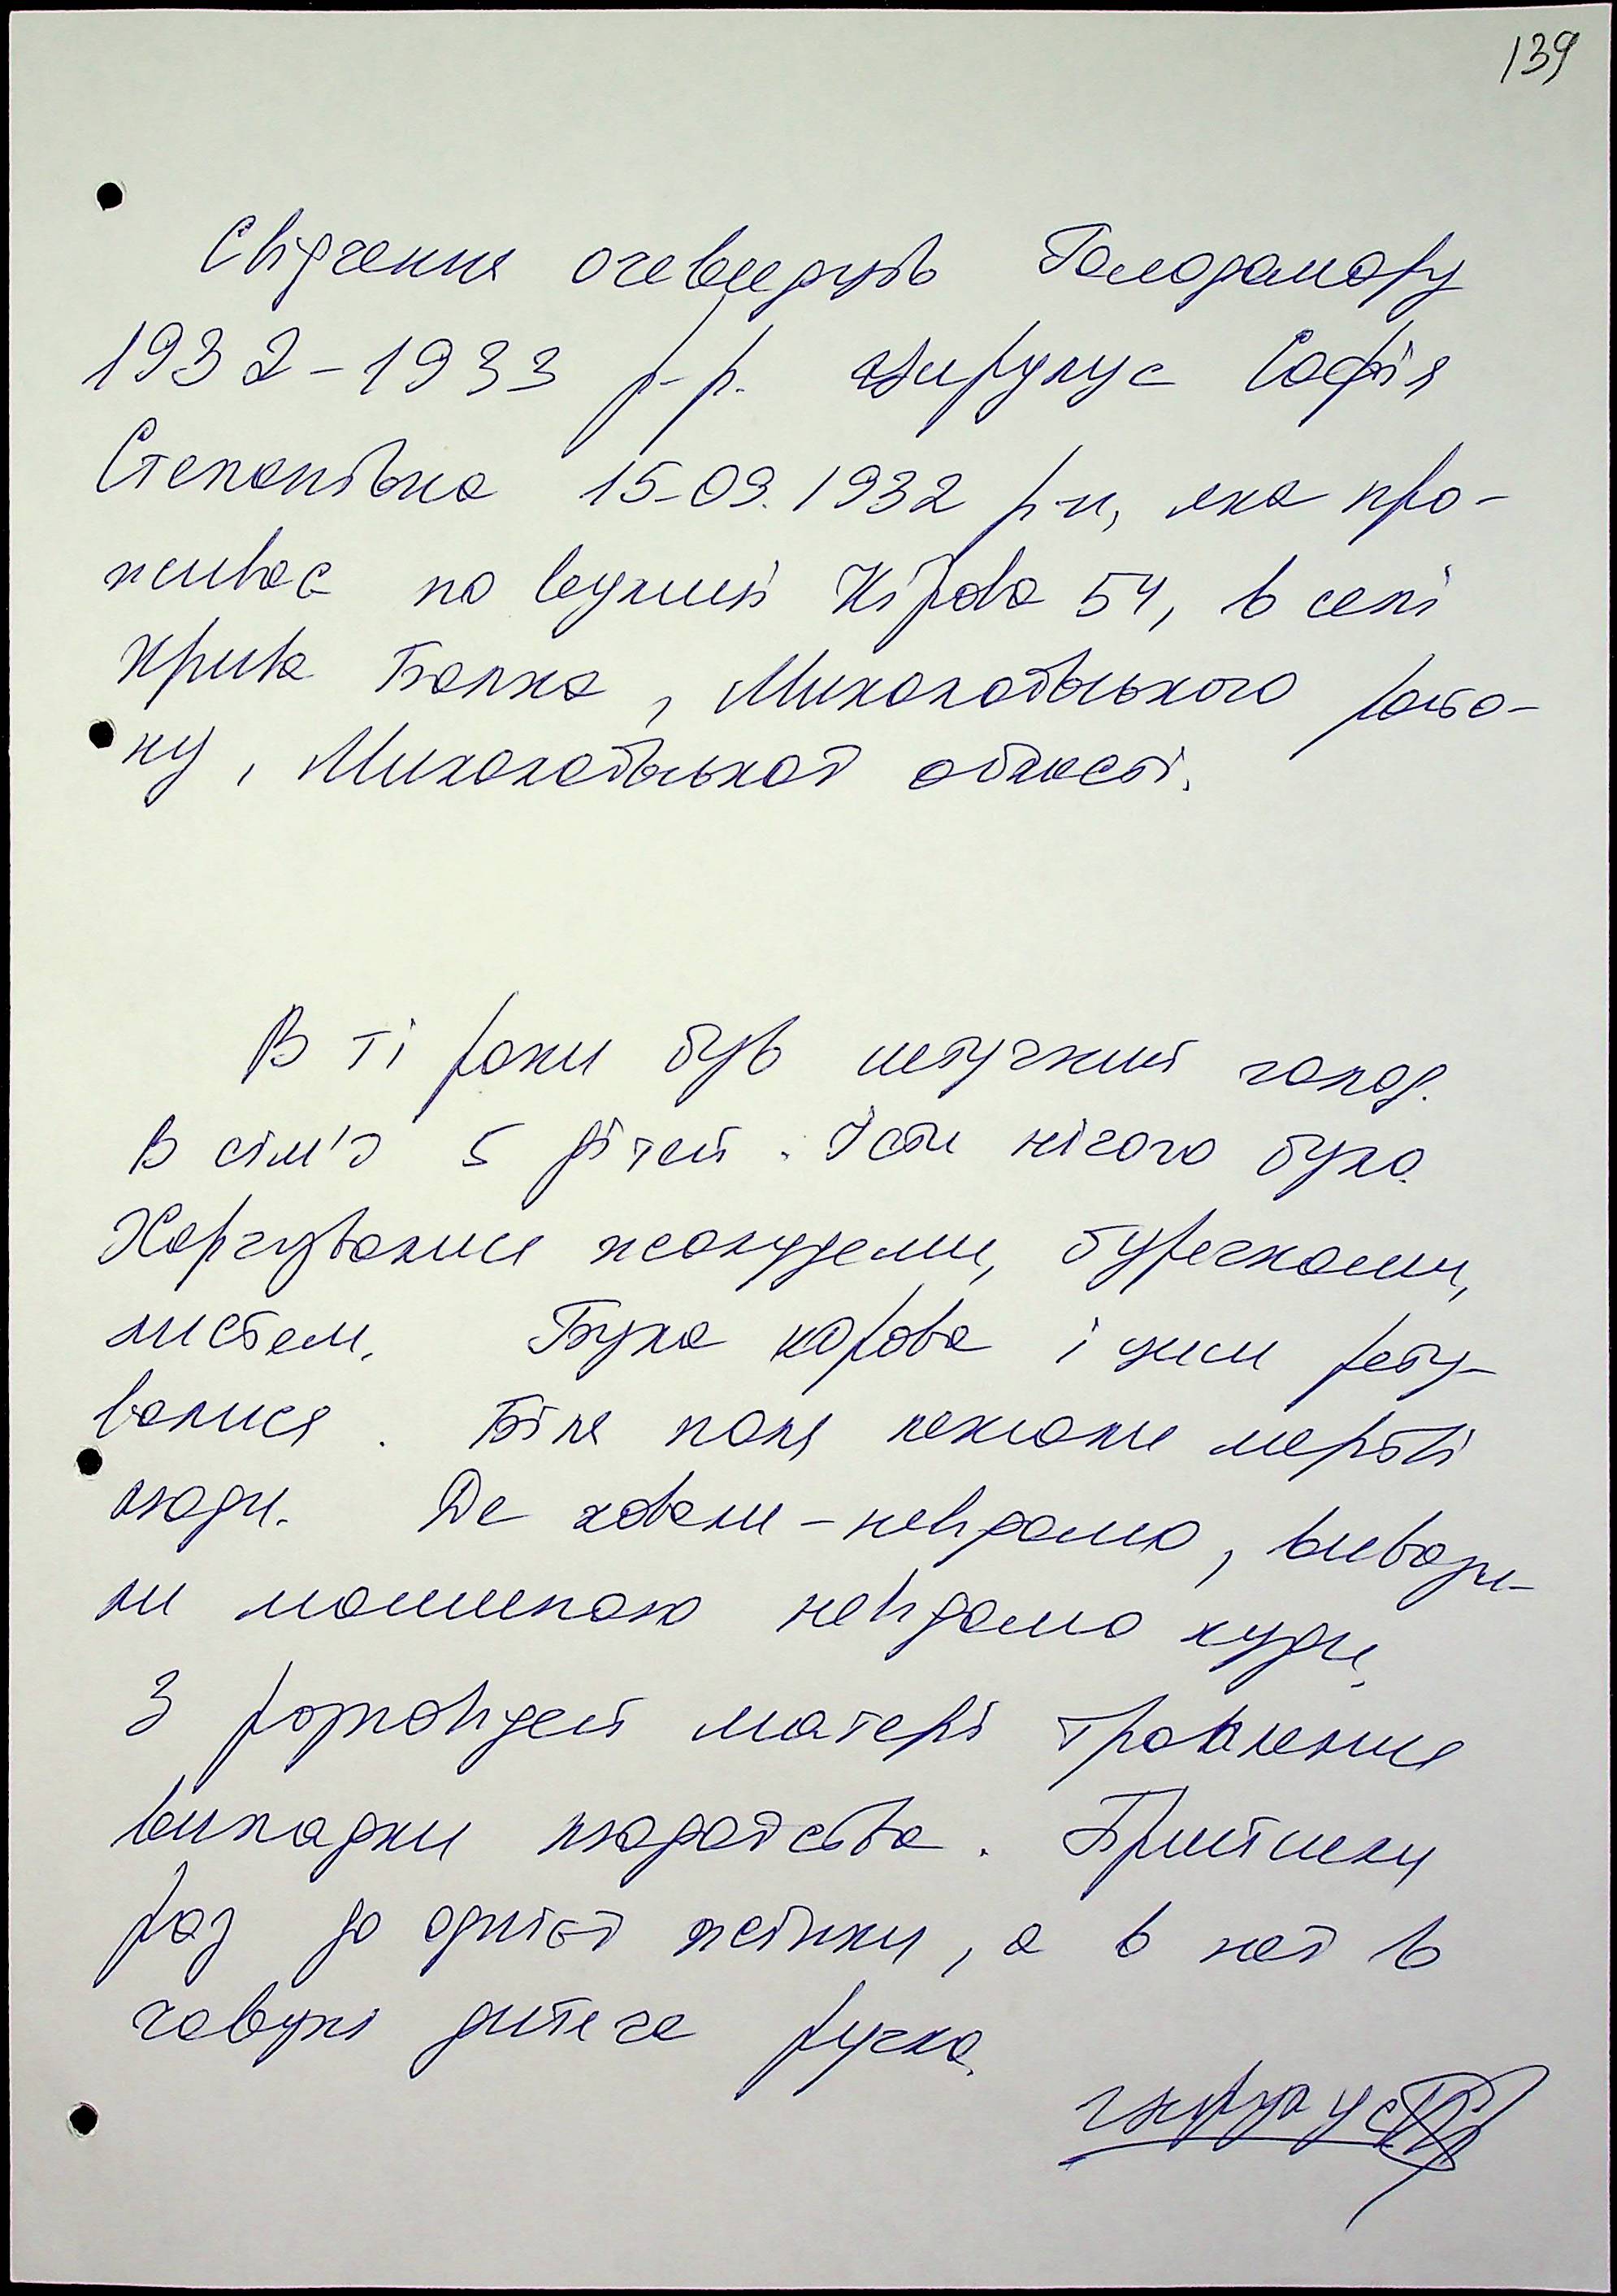 139
Свідчення очевидців Голодомору
1932-1933 р-р. Софія
Степанівна 15-09.1932 р-н, яка про-
живає по вулиці Кірова 54, в селі
Крива Балка, Миколаївського райо-
ну, Миколаївської області.
В ті роки був штучний голод.
В сім'ї 5 дітей. Їсти нічого було.
Харчувалися жолудями, бурячками,
листем. Була корова і цим ряту-
валися. Біля поля лежали мертві
люди. Де ховали - невідомо, вивози-
ли машиною невідомо куди.
З розповідей матері траплялися
випадки людоїдства. Прийшли
раз до однієї жінки, а в неї в
чавуні дитяча ручка.